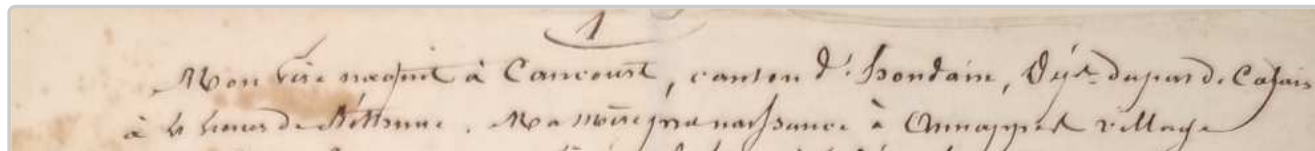 1
Mon Père naquit à Caucourt, canton d'houdain, Dépt. du pas de Calais
à 4 lieues de Béthune. Ma mère prit naissance à Annappes village